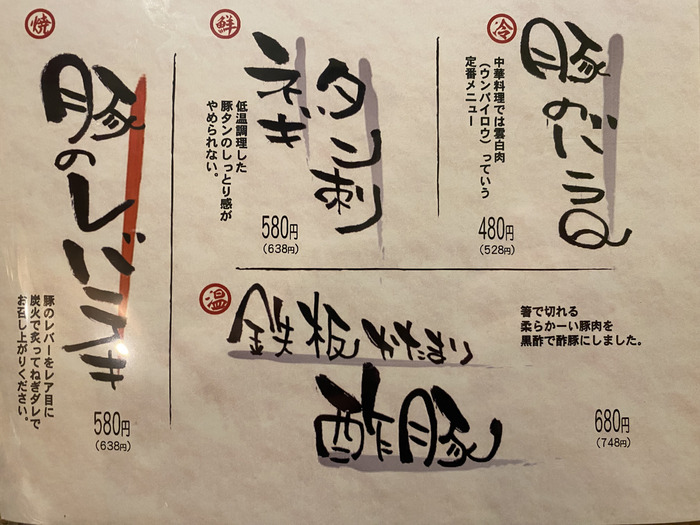 冷
豚の
中華料理では雲白肉
（ウンパイロウ）っていう
定番メニュー
480円
（528円）
鮮
タン刺
ネギ
低温調理した
豚タンのしっとり感が
やめられない。
580円
（638円）
焼
豚のレバテキ
豚のレバーをレア目に
炭火で炙ってねぎダレで
お召し上がりください。
580円
（638円）
温
鉄板かたまり
酢豚
箸で切れる
柔らかーい豚肉を
黒酢で酢豚にしました。
680円
（748円）